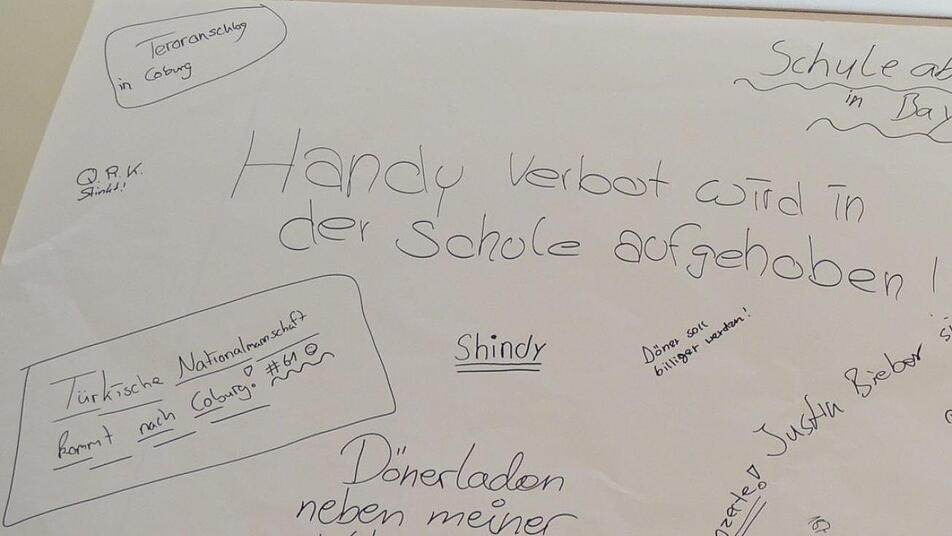 Teroranschlag
in Coburg
Schule ab
in Bay
Q.R.K.
Stinkt!
Handy verbot wird in
der Schule aufgehoben!
Türkische Nationalmannschaft
kommt nach Coburg! #61
Shindy
Döner soll
billiger werden!
Justin Bieber
nzerte!
Dönerladen
neben meiner